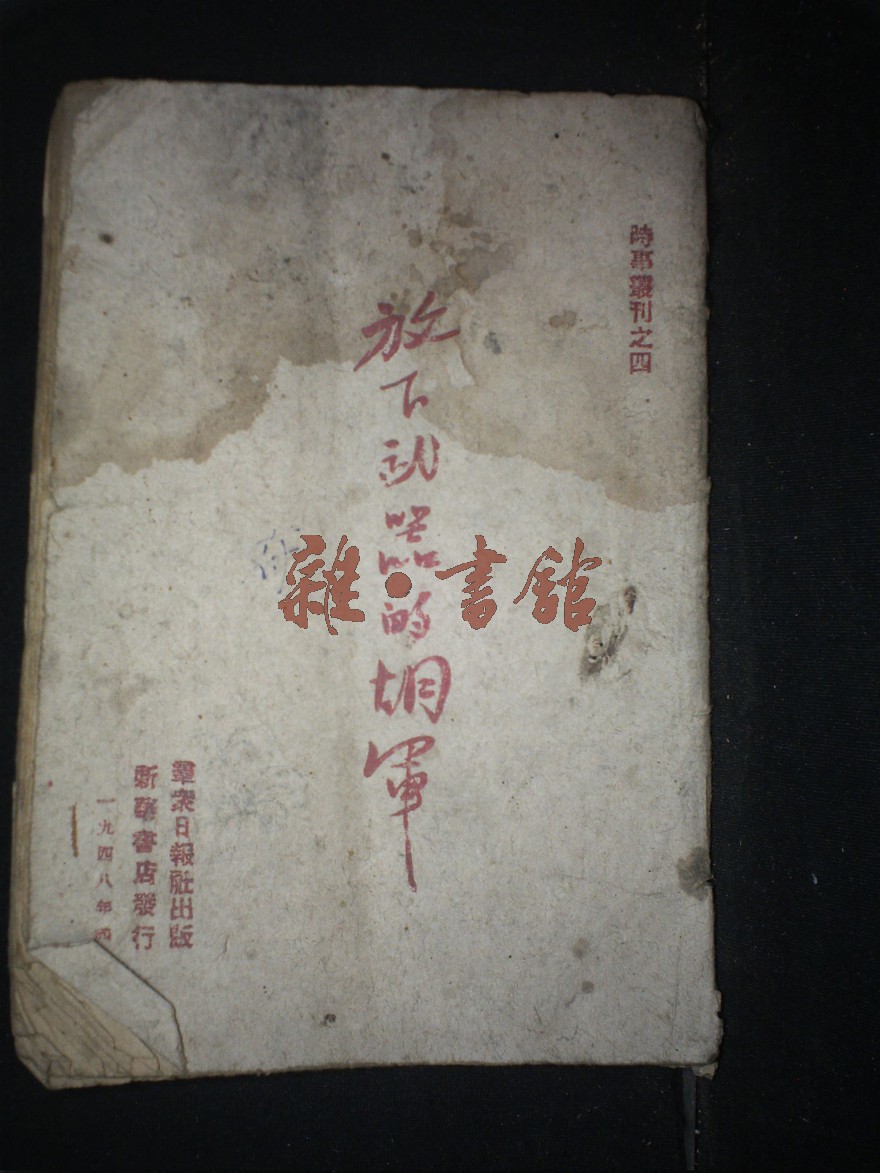 時事叢刊之四
放下武器的胡軍
雜·書館
羣衆日報社出版
新華書店發行
一九四八年四